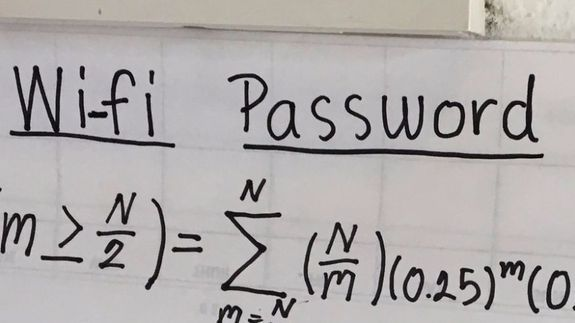 Wi-fi Password
m ≥ N/2) = N∑m=N (N/m)(0.25)^m(0.